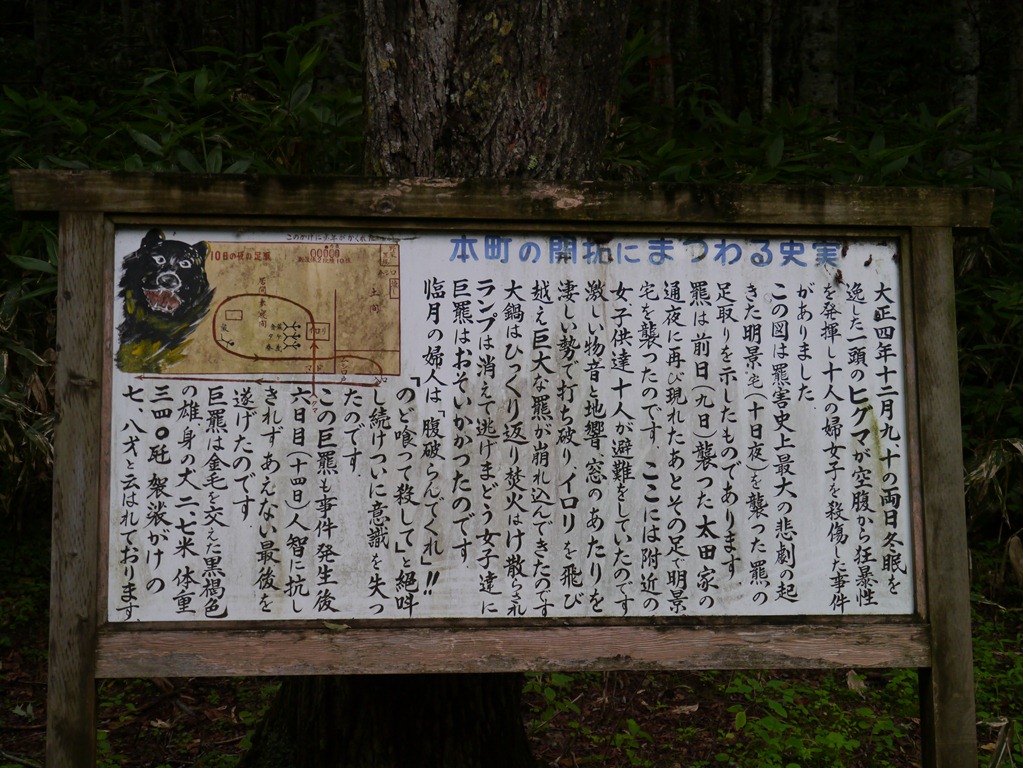 本町の開拓にまつわる史実
大正四年十二月九、十の両日冬眠を
逸した一頭のヒグマが空腹から狂暴性
を発揮し十人の婦女子を殺傷した事件
がありました
この図は羆害史上最大の悲劇の起
きた明景宅(十日夜)を襲った羆の
足取りを示したものであります。
羆は前日(九日)襲った太田家の
通夜に再び現れたあとその足で明景
宅を襲ったのです.ここには附近の
女子供達十人が避難をしていたのです
激しい物音と地響、窓のあたりを
凄しい勢で打ち破り、イロリを飛び
越え巨大な羆が崩れ込んできたのです
大鍋はひっくり返り焚火はけ散らされ
ランプは消えて逃げまどう女子達に
巨羆はおそいかかったのです
臨月の婦人は「腹破らんでくれ」!!
「のど喰って殺して」と絶叫
し続けついに意識を失っ
たのです
この巨羆も事件発生後
六日目(十四日)人智に抗し
きれずあえない最後を
遂げたのです
巨羆は金毛を交えた黒褐色
の雄、身の丈二.七米、体重
三四〇瓩袈裟がけの
七、八才と云はれております
このかげに少年がかくれた
10日の夜の足風
居間兼寝間
土間
イロリ